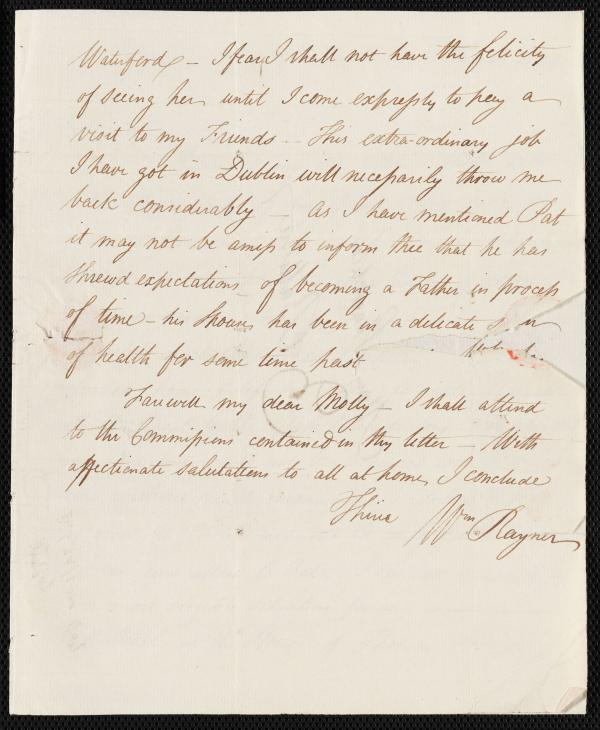 Waterford – I fear I shall not have the felicity
of seeing her until I come expressly to pay a
visit to my Friends – This extra-ordinary job
I have got in Dublin will necessarily throw me
back considerably – as I have mentioned Pat
it may not be amiss to inform thee that he has
shrewd expectations of becoming a Father in process
of time – his Spouse has been in a delicate
of health for some time past
Farewell my dear Molly – I shall attend
to the Commissions contained in thy letter – With
affectionate salutations to all at home, I conclude
Thine Wm Rayner